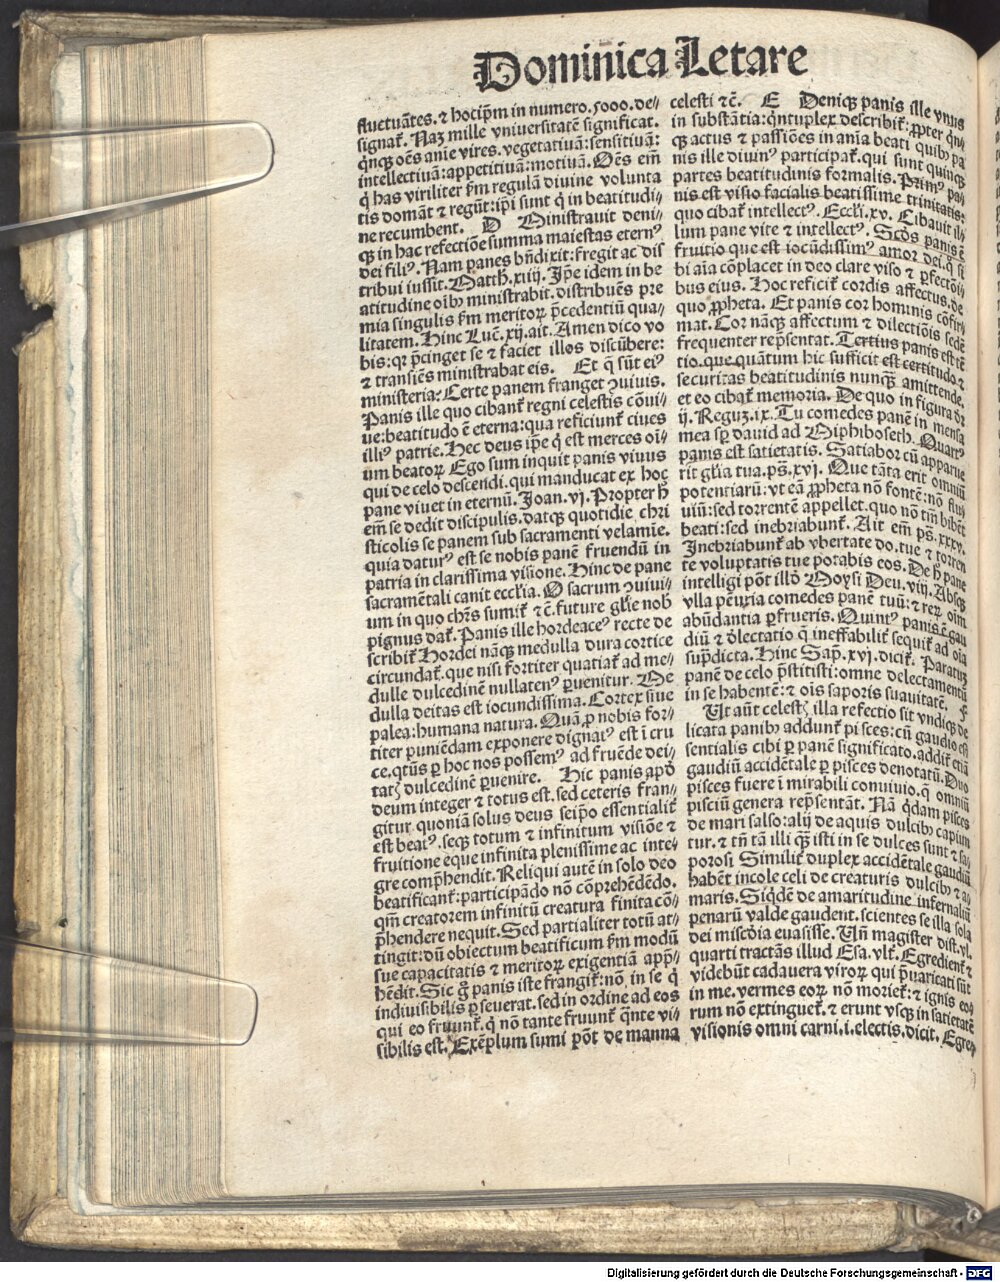 Dominica Letare
fluctuãtes. ⁊ hoc ip̃m in numero .5000. de⸗
signat᷑. Naʒ mille vniuersitatẽ significat.
q̃nqȝ oẽs anie vires. vegetatiuã: sensitiuã:
intellectiuã: appetitiuã: motiuã. Oẽs eñi
q̃ has viriliter ẜm regulã diuine volunta
tis domãt ⁊ regũt: ip̃i sunt q̃ in beatitudi⸗
ne recumbent. D Ministrauit deni⸗
qȝ in hac refectiõe summa maiestas etern⁹
dei fili⁹. Nam panes bñdixit: fregit ac dis
tribui iussit. Matth. xiiij. Ip̃e idem in be
atitudine oĩbȝ ministrabit. distribuẽs pre
mia singulis ẜm meritoꝝ p̃cedentiũ qua⸗
litatem. Hinc Luc̃. xij. ait. Amen dico vo
bis: qꝛ p̃cinget se ⁊ faciet illos discũbere:
⁊ transiẽs ministrabat eis. Et q̃ sũt ei⁹
ministeria: Certe panem franget ↄuiuis.
Panis ille quo cibant᷑ regni celestis cõui⸗
ue: beatitudo ẽ eterna: qua reficiunt᷑ ciues
illi⁹ patrie. Hec deus ip̃e q̃ est merces oĩ⸗
um beatoꝝ Ego sum inquit panis viuus
qui de celo descendi. qui manducat ex hoc
pane viuet in eternũ. Joan. vj. Propter h̃
em̃ se dedit discipulis. datqȝ quotidie chri
sticolis se panem sub sacramenti velamie.
quia datur⁹ est se nobis panẽ fruendũ in
patria in clarissima visione. Hinc de pane
sacramẽtali canit eccl̃ia. O sacrum ↄuiui⸗
um in quo chr̃s sumit᷑ ⁊ c̃. future gl̃ie nob̃
pignus dat᷑. Panis ille hordeace⁹ recte de
scribit᷑ Hordei nãqȝ medulla dura cortice
circundat᷑. que nisi fortiter quatiat᷑ ad me⸗
dulle dulcedinẽ nullaten⁹ ꝑuenitur. Me
dulla deitas est iocundissima. Cortex siue
palea: humana natura. Quã ꝓ nobis for⸗
titer puniẽdam exponere dignat⁹ est ĩ cru
ce. qtũs ꝑ hoc nos possem⁹ ad fruẽde dei⸗
tatꝭ dulcedinẽ ꝑuenire. Hic panis apđ
deum integer ⁊ totus est. sed ceteris fran⸗
gitur quoniã solus deus seip̃o essentialit᷑
est beat⁹. seqȝ totum ⁊ infinitum visiõe ⁊
fruitione eque infinita plenissime ac inte⸗
gre comp̃hendit. Reliqui autẽ in solo deo
beatificant᷑: participãdo nõ cõprehẽdẽdo.
qm̃ creatorem infinitũ creatura finita cõ⸗
p̃hendere nequit. Sed partialiter totũ at⸗
tingit: dũ obiectum beatificum ẜm modũ
sue capacitatis ⁊ meritoꝝ exigentiã app̃⸗
hẽdit. Sic g̃ panis iste frangit᷑: nõ in se q̃
indiuisibilis ꝑseuerat. sed in ordine ad eos
qui eo fruunt᷑. q̃ nõ tante fruunt᷑ q̃nte vi⸗
sibilis est. Exẽplum sumi põt de manna
celesti ⁊c̃. E Deniqȝ panis ille vnus
in substãtia: q̃ntuplex describit᷑: ꝓpter q̃n⸗
qȝ actus ⁊ passiões in anĩa beati quibȝ pa
nis ille diuin⁹ participat᷑. qui sunt quinqȝ
partes beatitudinis formalis. Prim⁹ pa⸗
nis est visio facialis beatissime trinitatis:
quo cibat᷑ intellect⁹. Eccl̃i. xv. Cibauit il⸗
lum pane vite ⁊ intellect⁹. Scd̃s panis ẽ
fruitio que est iocũdissim⁹ amor dei. q̃ si
bi aĩa cõplacet in deo clare viso ⁊ ꝑfectõi⸗
bus eius. Hoc reficit᷑ cordis affectus. de
quo ꝓpheta. Et panis cor hominis cõfir⸗
mat. Cor nãqȝ affectum ⁊ dilectiõis sedẽ
frequenter rep̃sentat. Tertius panis est tẽ
tio. que quãtum hic sufficit est certitudo ⁊
securitas beatitudinis nunqȝ amittende.
et eo cibat᷑ memoria. De quo in figura dr̃
ij. Reguʒ. ix. Tu comedes panẽ in mensa
mea sp̃ dauid ad Miphiboseth. Quart⁹
panis est satietatis. Satiabor cũ apparue
rit gl̃ia tua. ps̃. xvj. Que tãta erit omniũ
potentiarũ: vt eã ꝓpheta nõ fontẽ: nõ flu⸗
uiũ: sed torrentẽ appellet. quo nõ tm̃ bibẽt
beati: sed inebriabunt᷑. Ait em̃ ps̃. xxxv.
Inebriabunt᷑ ab vbertate do. tue ⁊ torren
te voluptatis tue potabis eos. De h̃ pane
intelligi põt illđ Moysi Deu. viij. Absqȝ
vlla pẽuria comedes panẽ tuũ: ⁊ reꝝ oĩm
abũdantia ꝑfrueris. Quint⁹ panis ẽ gau
diũ ⁊ đlectatio q̃ ineffabilit᷑ sequit᷑ ad oĩa
sup̃dicta. Hinc Sap̃. xvj. dicit᷑. Paratuʒ
panẽ de celo p̃stitisti: omne delectamentũ
in se habentẽ: ⁊ oĩs saporis suauitatẽ. F
Ut aũt celestꝭ illa refectio sit vndiqȝ de
licata panibȝ addunt᷑ pisces: cũ gaudio eñ
sentialis cibi ꝑ panẽ significato. addit᷑ etiã
gaudiũ accidẽtale ꝑ pisces denotatũ. Duo
pisces fuere ĩ mirabili conuiuio. q̃ omniũ
pisciũ genera rep̃sentãt. Nã q̃dam pisces
de mari salso: alij de aquis dulcibȝ capiun
tur. ⁊ tñ tã illi qȝ isti in se dulces sunt ⁊ sa⸗
porosi Similit᷑ duplex accidẽtale gaudiũ
habẽt incole celi de creaturis dulcibȝ ⁊ a⸗
maris. Siqđẽ de amaritudine infernaliũ
penarũ valde gaudent. scientes se illa sola
dei misc̃dia euasisse. Uñ magister dist. vl.
quarti tractãs illud Esa. vlt᷑. Egredient᷑ ⁊
videbũt cadauera viroꝝ qui p̃uaricati sũt
in me. vermes eoꝝ nõ moriet᷑: ⁊ ignis eo⸗
rum nõ extinguet᷑. ⁊ erunt vsqȝ in satietatẽ
visionis omni carni. i. electis. dicit. Egre⸗
Digitalisierung gefördert durch die Deutsche Forschungsgemeinschaft - DFG